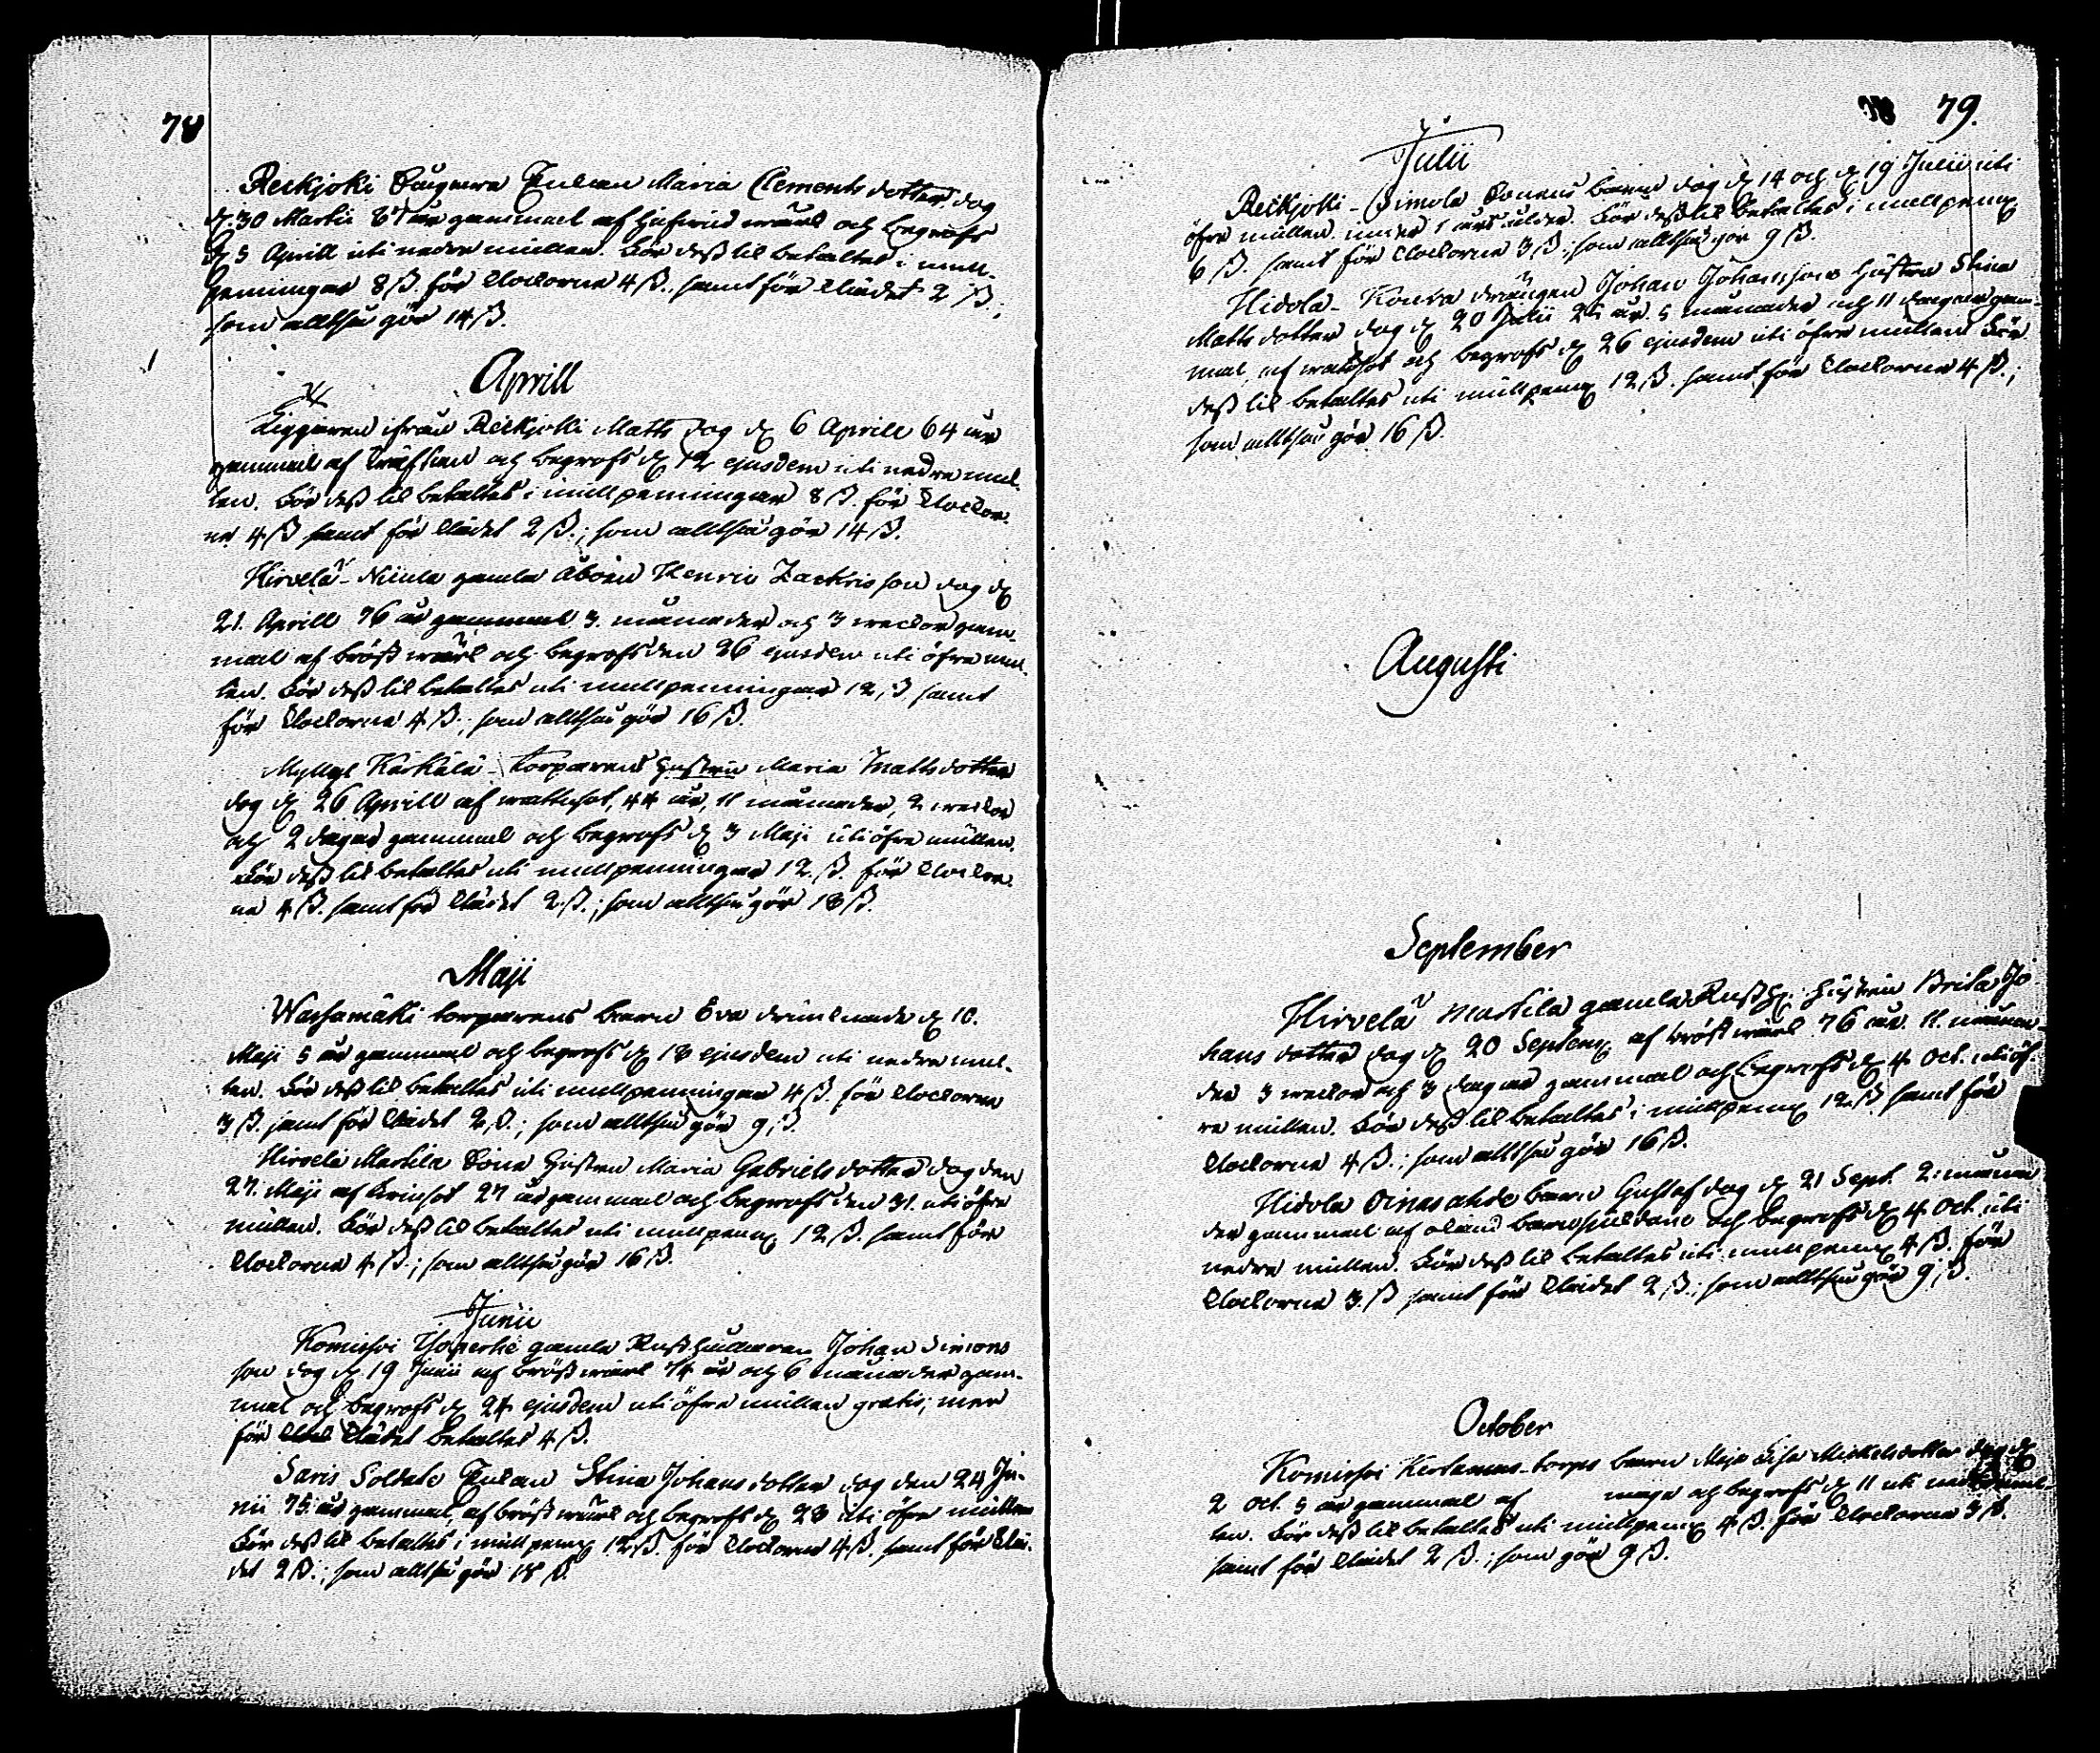 78
Reikjoki Enkan Maria Clements dotter dog
d. 30 Martii 67 år gammal af hufvud wärk och begrofs
d. 5 Aprill uti nedre mullen. Bör dess til betaltes i mull-
penningar 8 ß. för klockorne 4 ß., samt för klädet 2 ß.;
som alltså gör 14 ß.
Aprill
Tiggaren ifrån Reikjoki Matts dog d. 6 Aprill 64 år
gammal af kräftan och begrofs d. 12 ejusdem uti nedre mul-
len. Bör dess til betaltes i mullpenningar 8 ß. för klockor-
ne 4 ß samt för klädet 2 ß.; som alltså gör 14 ß.
Hirvelä Niiula gamla åboen Henric Zachrisson dog d.
21. Aprill 76 år gammal 3. månader och 3 weckor gam-
mal af bröst wärk och begrofs den 26 ejusdem uti öfre mul-
len. Bör dess til betaltes uti mullpenningar 12 ß samt
för klockorne 4 ß.; som alltså gör 16 ß.
Myllyl Kärkälä - torparens hustru Maria Matts dotter
dog d. 26 Aprill af wattusot, 44 år, 11 månader, 2 weckor
och 2 dagar gammal och begrofs d. 3 Maji uti öfre mullen.
Bör dess til betaltes uti mullpenningar 12 ß. för klockor-
ne 4 ß. samt för klädet 2 ß.; som alltså gör 18 ß.
Maji
Wachamäki torparens barn Eva drunknade d. 10.
Maji 5 år gammal och begrofs d. 18 ejusdem uti nedre mul-
len. Bör dess til betaltes uti mullpenningar 4 ß. för klockorne
3 ß. samt för klädet 2 ß.; som alltså gör 9 ß.
Hirvelä Markila Sons hustru Maria Gabriels dotter dog den
27. Maji af 27 år gammal och begrofs den 31. uti öfre
mullen. Bör dess til betaltes uti mullpenng 12 ß. samt för
klockorne 4 ß.; som alltså gör 16 ß.
Junii
Komissoi Isopere gamla Rusthållaren Johan Simons
son dog d. 19 Junii af bröst wärk 74 år och 6 månader gam-
mal och begrofs d. 24 ejusdem uti öfre mullen gratis; men
för klädet betaltes 4 ß.
Saris Soldate Enkan Stina Johans dotter dog den 24 Ju-
nii 75 år gammal, af bröst wärk och begrofs d. 28 uti öfre mullen
Bör dess til betaltes i mullpenng 12 ß. för klockorne 4 ß. samt för klä-
det 2 ß.; som alltså gör 18 ß.
79.
Julii
Reikjoki - Simola Sonens barn dog d. 14 och d. 19 Julii uti
öfre mullen under 1 års ålder. Bör dess til betaltes i mullpenng
6 ß. samt för klockorne 3 ß.; som alltså gör 9 ß.
Hidola - drängen Johan Johanssons hustru Stina
Matts dotter dog d. 20 Julii 25 år 5 månader och 11 dagar gam-
mal, af och begrofs d. 26 ejusdem uti öfre mullen Bör
dess til betaltes uti mullpenng 12 ß. samt för klockorne 4 ß.;
som alltså gör 16 ß.
Augusti
September
Hirvelä Markila gamla Rusth: hustru Brita Jo-
hans dotter dog d. 20 Septemb af bröst wärk 76 år. 11. måna-
der 3 weckor och 3 dagar gammal och begrofs d. 4 Oct. uti öf-
re mullen. Bör dess til betaltes i mullpenng 12 ß samt för
klockorne 4 ß.; som alltså gör 16 ß.
Hidola Oinasahde barn Gustaf dog d. 21 Sept. 2 måna
der gammal af okänd barnsjukdom och begrofs d. 4 Oct. uti
nedre mullen. Bör dess til betaltes uti mullpenng 4 ß. för
klockorne 3. ß samt för klädet 2 ß.; som alltså gör 9 ß.
October
Komissoi torps barn Maja Lisa Mickelsdotter dog d.
2 Oct. 5 år gammal af och begrofs d. 11 uti nedre mul-
len. Bör dess til betaltes uti mullpenng 4 ß. för klockorne 3 ß.
samt för klädet 2 ß.; som gör 9 ß.